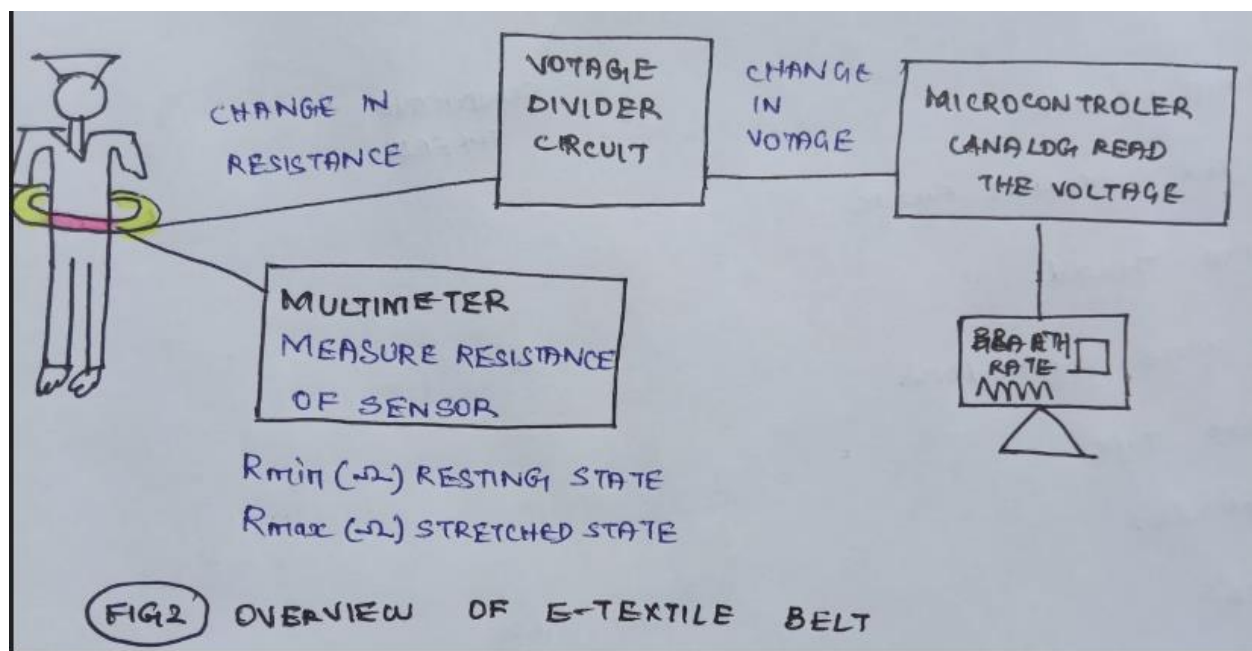 CHANGE IN
RESISTANCE
VOTAGE
DIVIDER
CIRCUIT
CHANGE
IN
VOTAGE
MICROCONTROLER
CANALOG READ
THE VOLTAGE
MULTIMETER
MEASURE RESISTANCE
OF SENSOR
RATE
Rmin (Ω) RESTING STATE
Rmax (Ω) STRETCHED STATE
FIG2 OVERVIEW OF E-TEXTILE BELT